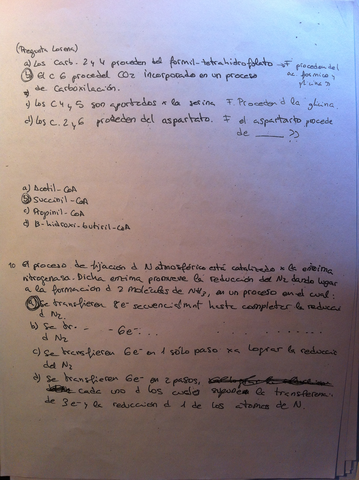 (Pregunta Lorena)
a) Los Carb. 2 y 4 proceden del formil-tetrahidrofolato → F proceden del
ac. fórmico y
b) El C 6 procede CO2 incorporado en un proceso
de Carboxilación.
c) Los C 4 y 5 son aportados x la serina F. Proceden d la gluna.
d) Los C. 2 y 6 proceden del aspartato. F el aspartarto procede
de ___ ??
a) Acetil-CoA
b) Succinil-CoA
c) Propinil-CoA
d) B-hidroxi-butiril-CoA
10 El proceso de fijación d N atmosférico está catalizado x la enzima
nitrogenasa. Dicha enzima promueve la reducción del N2 dando lugar
a la formación d 2 moléculas de NH3, en un proceso en el cual:
a) Se transfieren 8e- secuencialmnt hasta completar la reducci
d N2.
b) Se tr. - - - 6e- . . . . . . . .
d N2
c) Se transfieren 6e- en 1 sólo paso xa lograr la reducció
del N2
d) Se transfieren 6e- en 2 pasos,
cada uno d los cuales la transferen.
de 3e- y la reducción d 1 de los átomos de N.